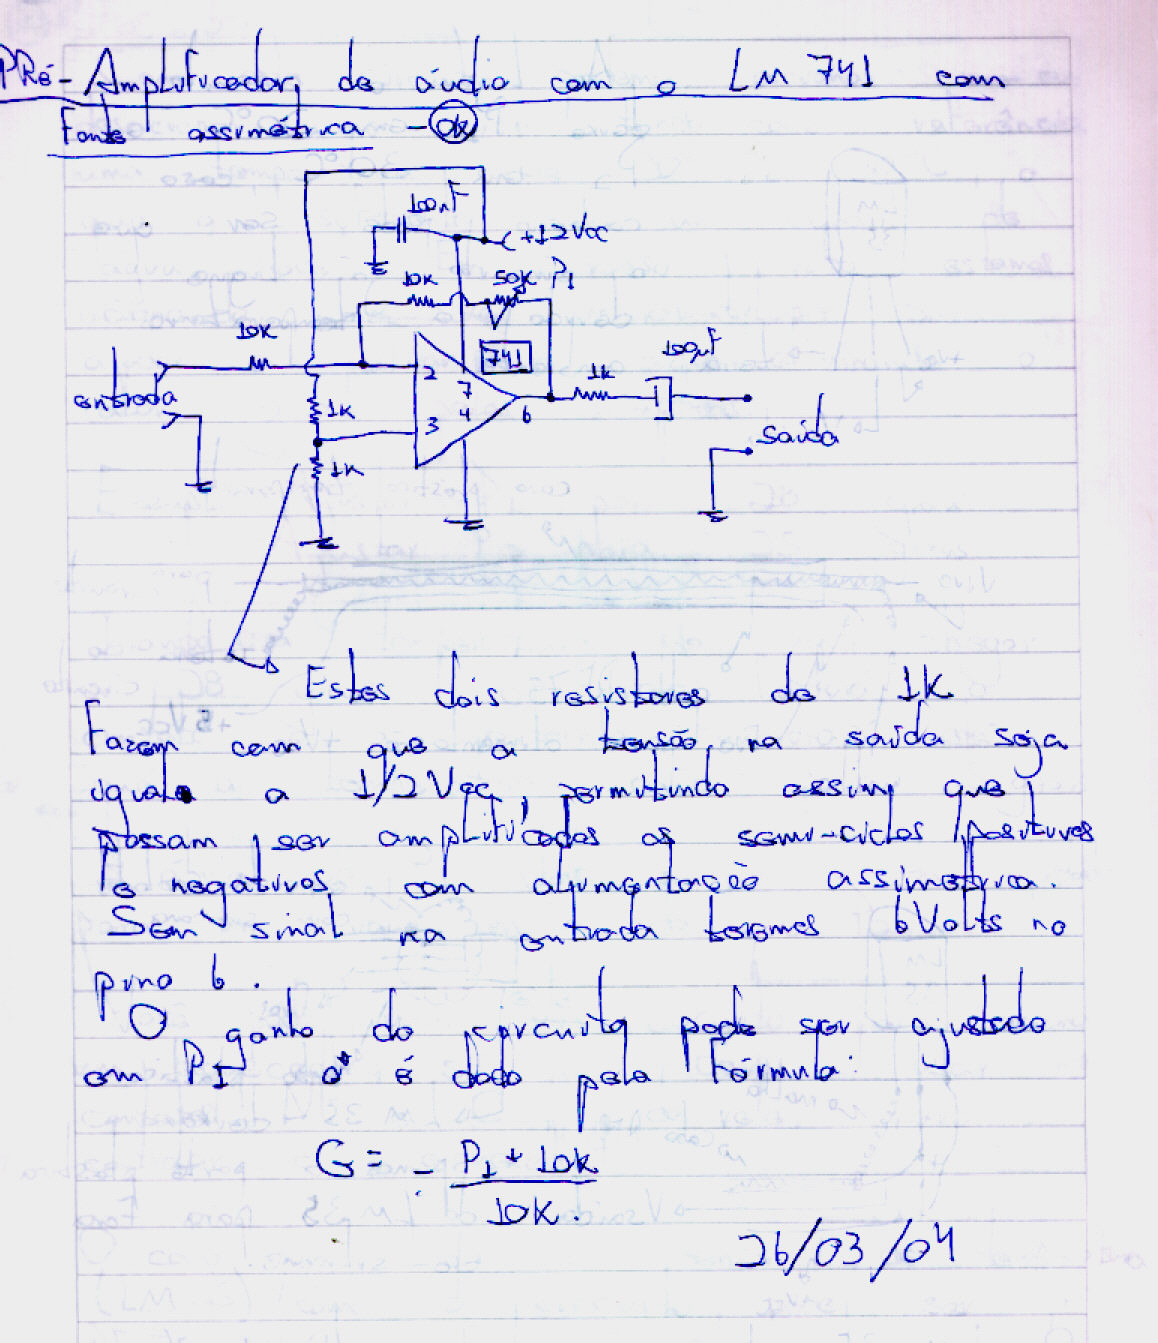 PRé-Amplificador de áudio com o LM 741 com
Fonte assimétrica - ok
100nF
+12Vcc
10K 50K P1
10K
741
100µF
entrada
2
7
1K
1K
4
6
3
Saída
1K
Estes dois resistores de 1K
Fazem com que a tensão na saída seja
igual a 1/2 Vcc, permitindo assim que
possam ser amplificados os semi-ciclos positivos
e negativos com alimentação assimétrica.
Sem sinal na entrada teremos 6 Volts no
pino 6.
O ganho do circuito pode ser ajustado
em P1 e é dado pela Fórmula:
G = - P1 + 10K
10K.
26/03/04